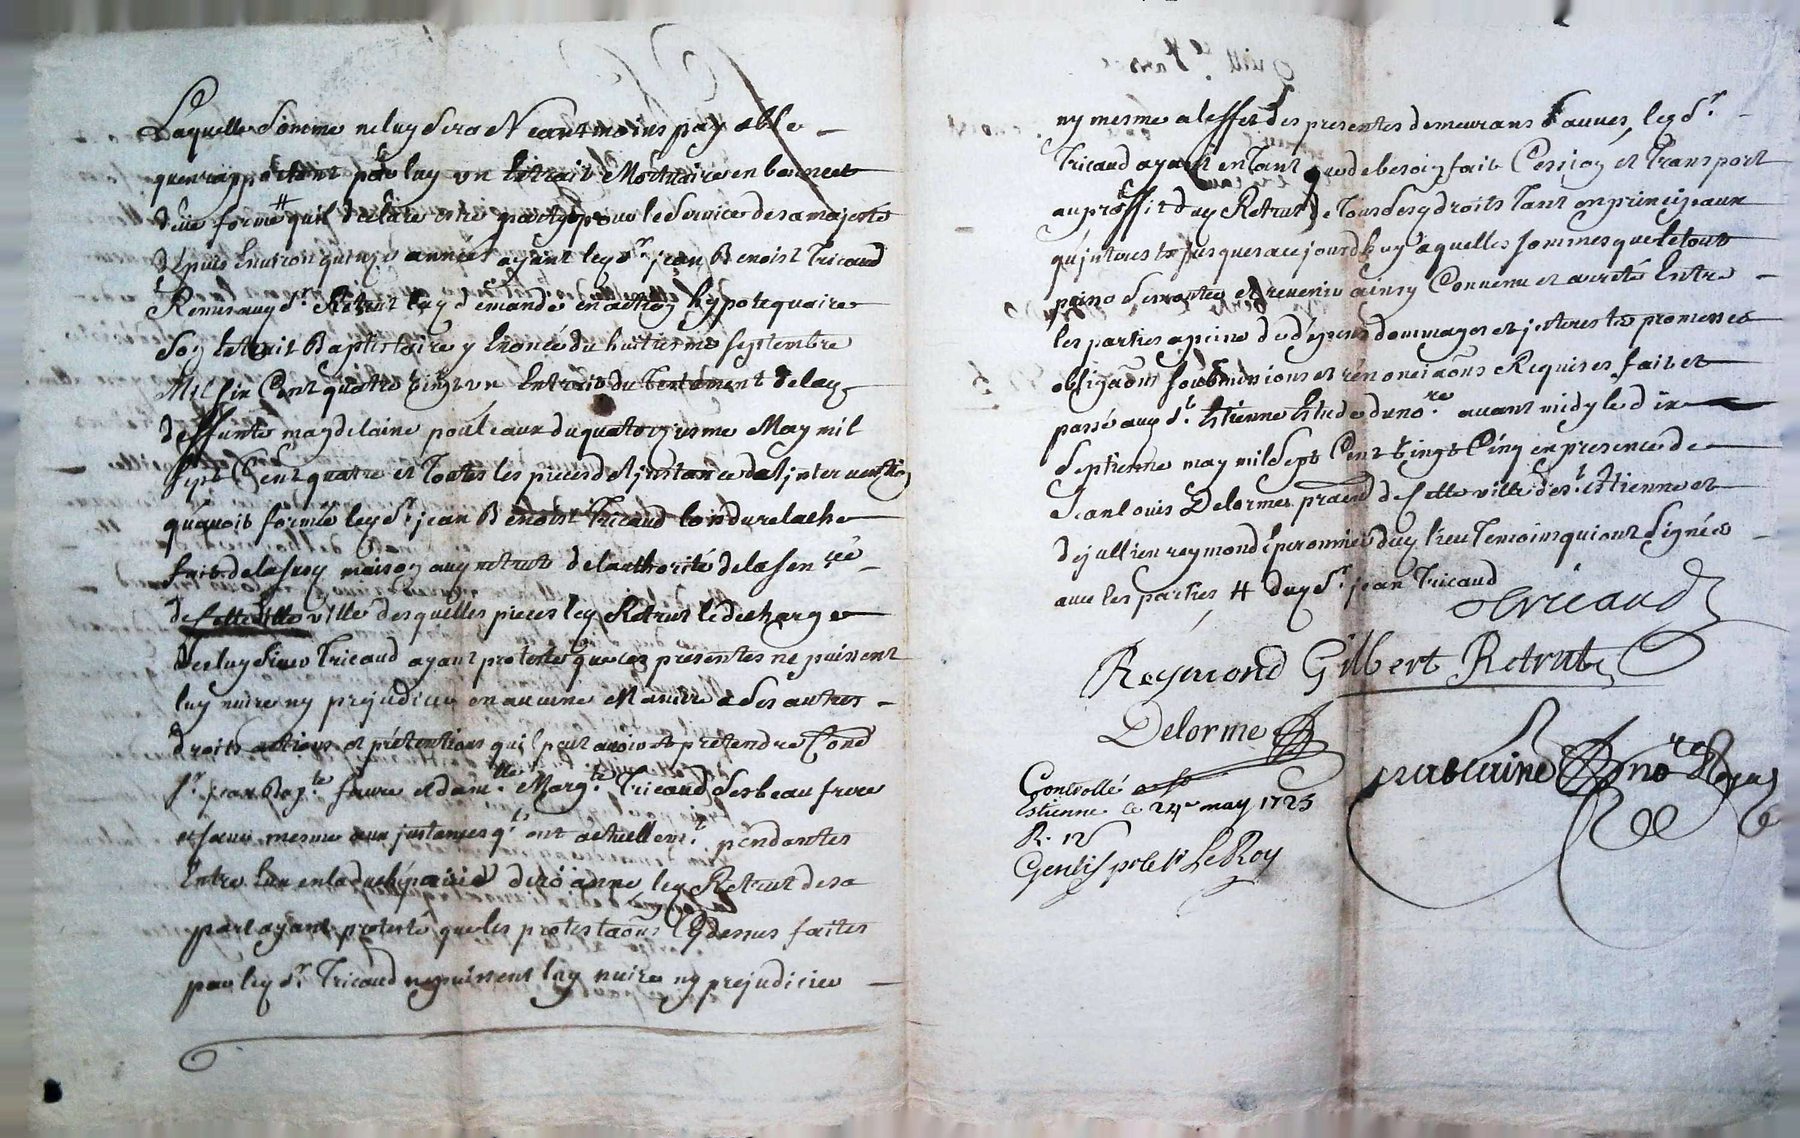 Laquelle somme ne luy sera Neantmoins payable
qu'en rapportant par luy un Extrait Mortuaire en bonne et
deüe forme # quil declare estre party pour le service de sa majesté
depuis Environ quinze années ayant ledt Sr jean Benoist Tricaud
Remis audt Sr Retrut luy demandé en action hypotequaire
Son Extrait Baptistaire y Enoncé du huitiesme septembre
Mil six Cent quatre vingt un Extrait du testament de lad
deffunte magdelaine pouleaux du quatorziesme May mil
sept Cent quatre et toutes les pieces de l'jnstance de l'jntervention
qu'avoit formée led Sr jean Benoist Tricaud
fait de la susd maison aud retrut de l'authorité de la sen rée
de cette ville ville desquelles pieces led Retrut le decharge
Iceluy Sieur Tricaud ayant protesté que les presentes ne puissent
luy nuire ny prejudicier en aucune Maniere a ses autres
droits actions et prétentions qu'il peut avoir et pretendre Cone
Sr jean Bapte faure et dam.lle Marg.te Tricaud ses beau frere
et sœur mesme aux jnstances q.ls ont actuellem.t pendantes
Entre Eux en la duché pairie de roanne, led Retrut de sa
part ayant protesté que les protestaõns Cy dessus faites
par led Sr Tricaud ne puissent luy nuire ny prejudicier
ny mesme a l'effet des presentes demeurans sauves, led Sr
Tricaud ayant en tant que de besoin fait Cession et transport
au proffit dud Retrut de tous sesd droits tant en principaux
qu'jnterests jusques a ce jourd'huy a quelles sommes que le tout
puisse se monter et revenir ainsy Convenu et arreté Entre
les parties a peine de dépens dommages et jnterests promesses
obligaõns soubmissions et renonciaõns Requises fait et
passé aud St Etienne Etude du no.re avant midy le dix
Septieme may mil Sept Cent vingt Cinq en presence de
Jean louis Delorme pratn de cette ville de St Etienne et
de jullien reymond éperonnier dud lieu temoins qui ont Signés
avec les parties # dud Sr jean Tricaud
Tricaud
Reymond Gilbert Retrut
Delorme
no.re Royal
Controllé a St
Estienne le 24e may 1725
R. 12 s
LeRoy